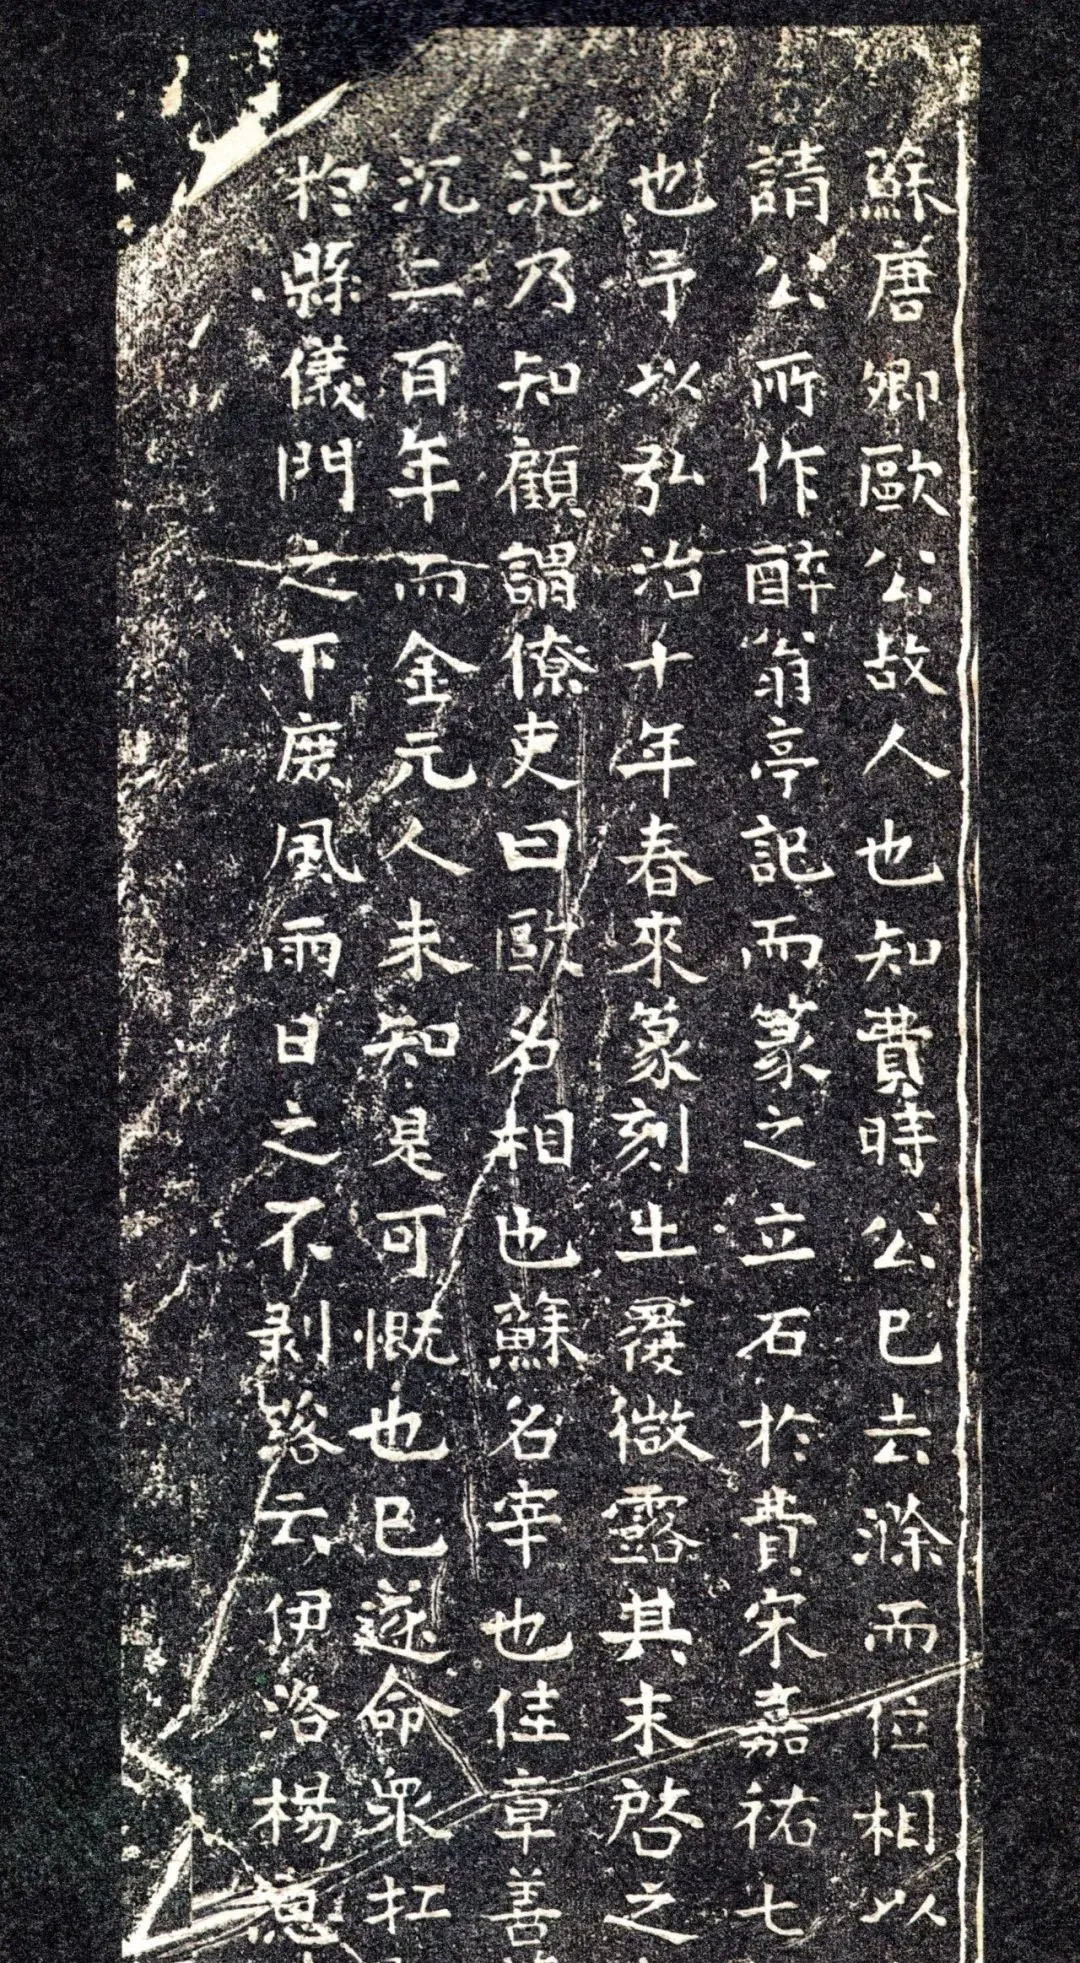 蘇唐卿歐公故人也知費時公已去滁而位相以
請公所作醉翁亭記而篆之立石於費宋嘉祐七
也予以弘治十年春來篆刻生覆微露其末啓之
洗乃知顧謂僚吏曰歐名相也蘇名宰也佳章善
沉二百年而金元人未知是可慨也已遂命眾扛
於縣儀門之下庶風雨日之不剥落云伊洛楊惪